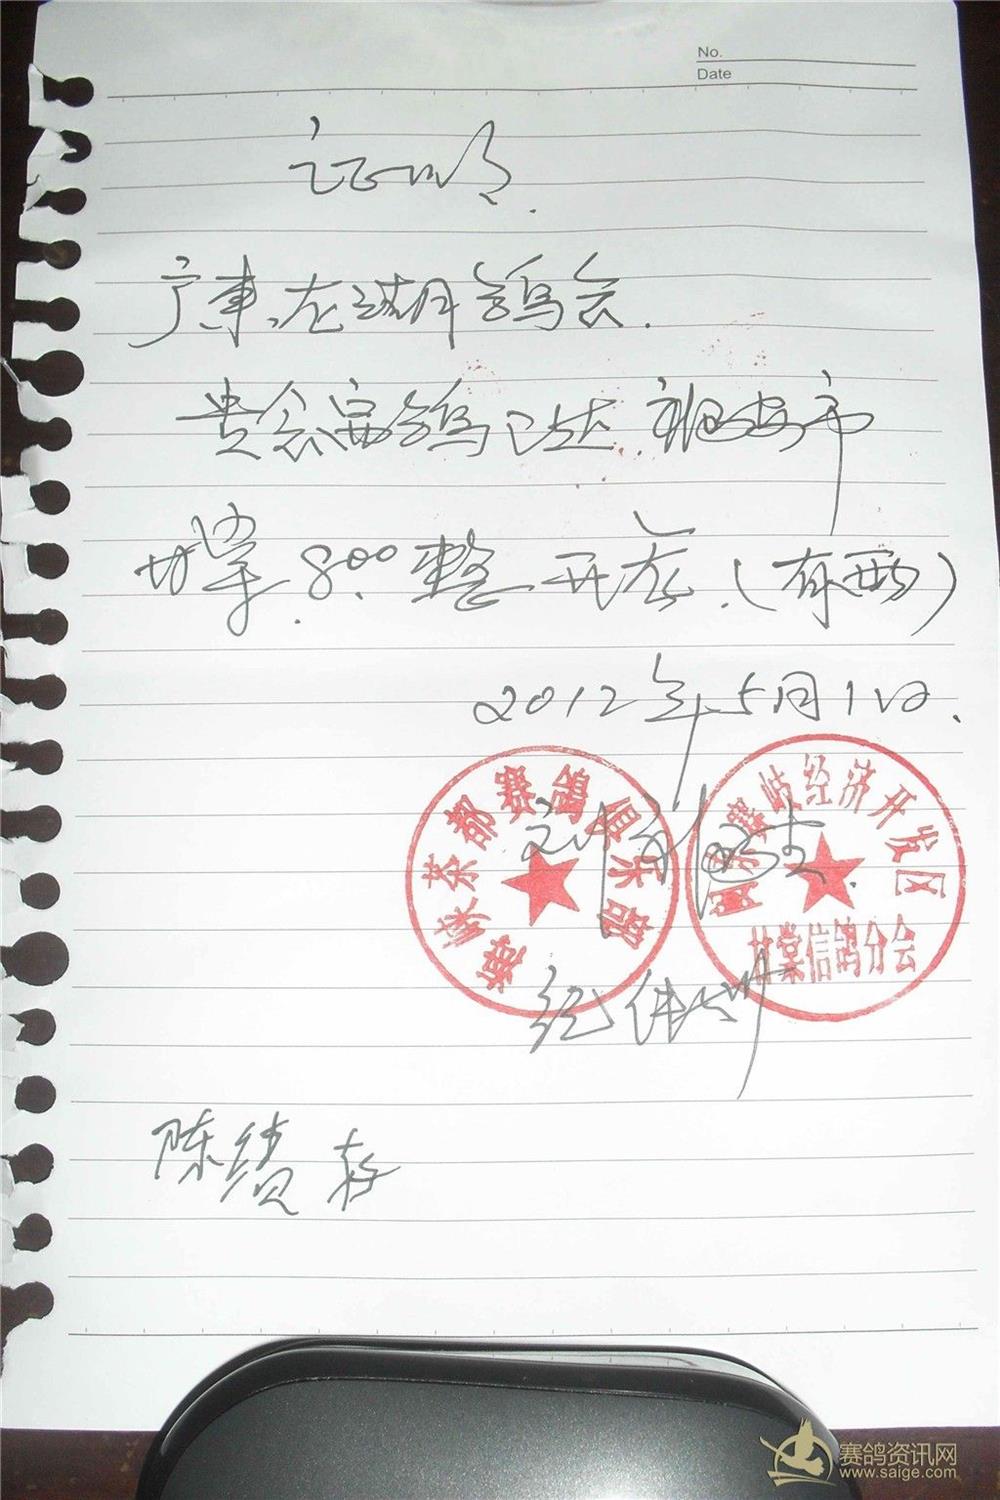 No.
Date
证明
广东龙湖鸽会
贵会赛鸽已达.福安市
甘棠.8:00整开笼.(有雨)
2012年5月1日.
海峡茶都赛鸽俱乐部
赛岐经济开发区
甘棠信鸽分会
陈绩存
赛鸽资讯网
www.saige.com